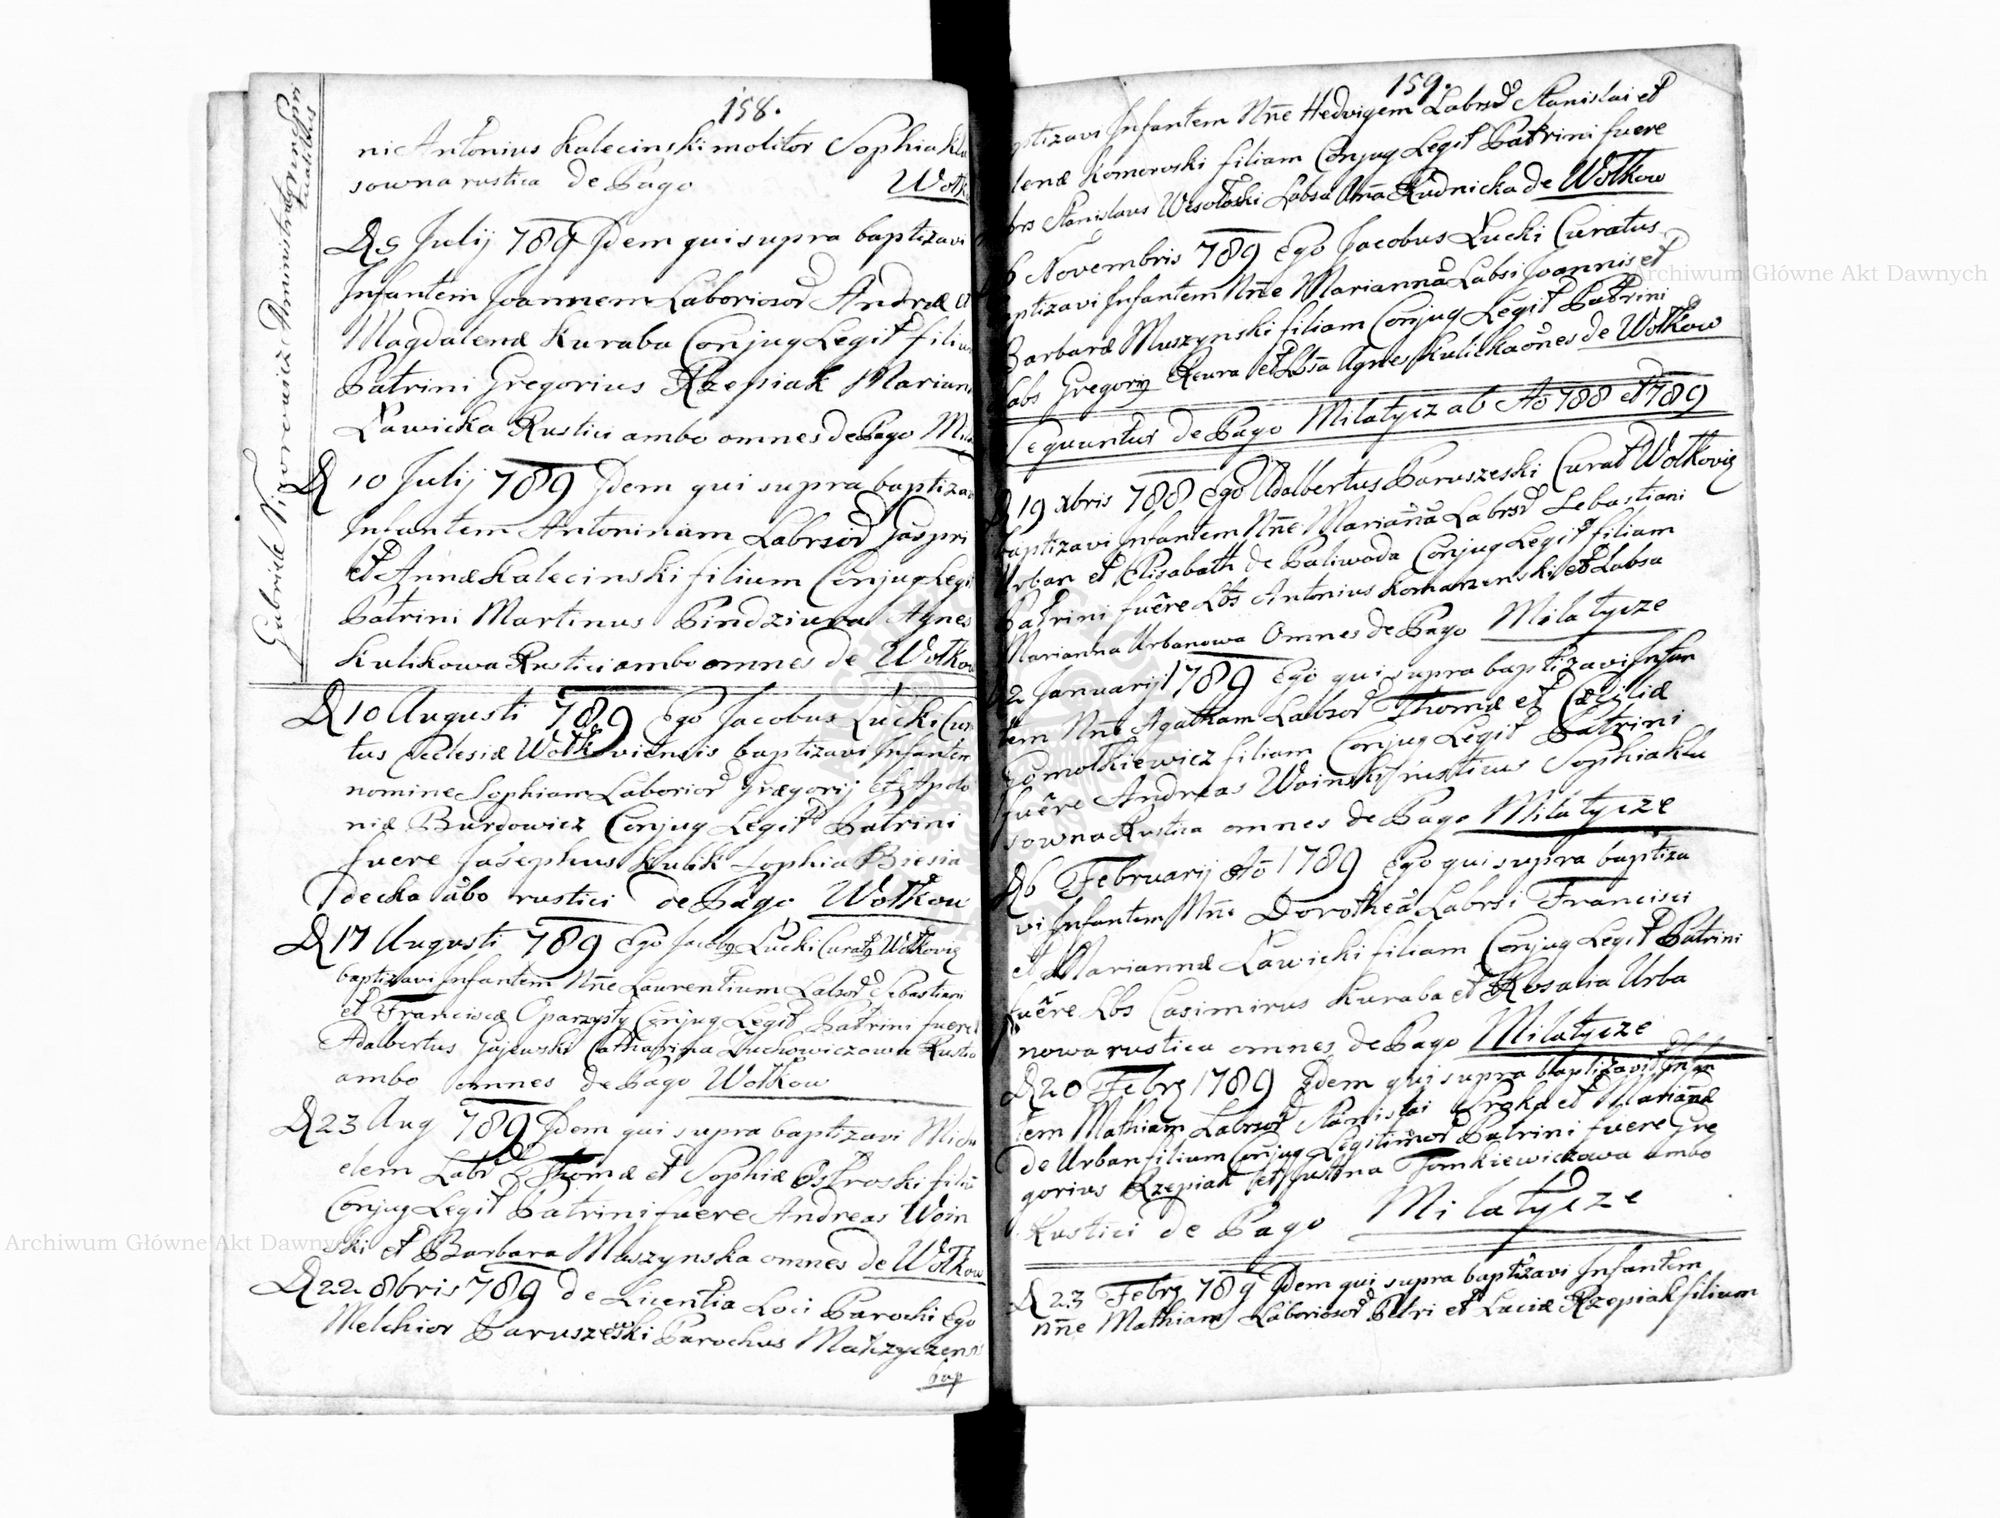 158.
ni Antonius Kalecinski molitor Sophia Kla
sowna rustica de Pago Wołk
D 5 Julij 789 Idem qui supra baptizavi
Infantem Joannem Laboriosor Andreæ et
Magdalenæ Kuraba Conjug Legit filium
Patrini Gregorius Rzepiak Mariann
Ławicka Rustici ambo omnes de Pago Mi
D 10 Julij 789 Idem qui supra baptizav
Infantem Antoninum Labrsor Gaspri
et Annæ Kalecinski filium Conjug Legit
Patrini Martinus Pindziura Agnes
Kulikowa Rustici ambo omnes de Wołkow
Gabriele Nigorowicz Administratore
D 10 Augusti 789 Ego Jacobus Łucki Cura
tus Ecclesiæ Wołkoviensis baptizavi Infantem
nomine Sophiam Laborior Gregorij et Apolo
niæ Burdowicz Conjug Legit Patrini
fuere Josephus Kulik Sophia Biesia
decka ambo rustici de Pago Wołkow
D 17 Augusti 789 Ego Jacobg Łucki Curatg Wołkovig
baptizavi Infantem Nne Laurentium Labsor Sebastiani
et Franciscæ Oparzysty Conjug Legit Patrini fuere
Adalbertus Gajewski Catharina Duchowiczowa Rustici
ambo omnes de Pago Wołkow
D 23 Aug 789 Idem qui supra baptizavi Micha
elem Labr Thomæ et Sophiæ Ostroski filiu
Conjug Legit Patrini fuere Andreas Woin
ski et Barbara Muszynska omnes de Wołkow
D 22 8bris 789 de Licentia Loci Parochi Ego
Melchior Paruszewski Parochus
bap
159.
ptizavi Infantem Nne Hedvigem Labrsor Stanislai et
lenæ Komorowski filiam Conjug Legit Patrini fuere
brs Stanislaus Wesołoski Labsa Anna Rudnicka de Wołkow
6 Novembris 789 Ego Jacobus Łucki Curatus
aptizavi Infantem Nne Marianna Labsi Joannis et
Barbaræ Muszynski filiam Conjug Legit Patrini
Labs Gregorig Reura et Lbsa Agnes Kulicka ones de Wołkow
Sequuntur de Pago Milatycz ab Ao 788 et 1789
D 19 xbris 788 Ego Adalbertus Paruszeski Curat Wołkovig
baptizavi Infantem Nne Mariana Labrsor Sebastiani
Urban et Elisabeth de Paliwoda Conjug Legit filiam
Patrini fuere Lbs Antonius Komarzenski et Labsa
Marianna Urbanowa Omnes de Pago Milatycze
22 Januarij 1789 Ego qui supra baptizavi Infan
tem Nne Agatham Labsor Thomæ et Cæciliæ
Gomolkiewicz filiam Conjug Legit Patrini
fuere Andreas Woinski rusticus Sophia Kla
sowna Rustica omnes de Pago Milatycze
D 6 Februarij Ao 1789 Ego qui supra baptiza
vi Infantem Nne Dorothea Labrsi Francisci
et Mariannæ Ławicki filiam Conjug Legit Patrini
fuere Lbs Casimirus Kuraba et Rosalia Urba
nowa rustica omnes de Pago Milatycze
D 20 Febrg 1789 Idem qui supra baptizavi Infan
tem Mathiam Labrsor Stanislai Proka et Marianæ
de Urban filium Conjug Legitimor Patrini fuere Gre
gorius Rzepiak et Justina Tomkiewiczowa ambo
Rustici de Pago Milatycze
D 23 Febrg 789 Idem qui supra baptizavi Infantem
nne Mathiam Laboriosor Petri et Luciæ Rzepiak filium
Archiwum Główne Akt Dawnych
Archiwum Główne Akt Dawnych